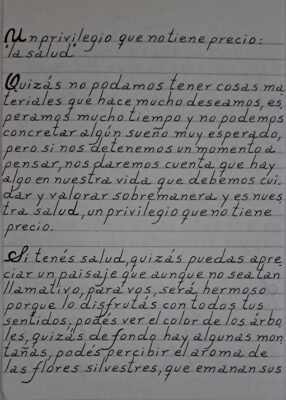 Un privilegio que no tiene precio:
"la salud"
Quizás no podamos tener cosas ma
teriales que hace mucho deseamos, es
peramos mucho tiempo y no podemos
concretar algún sueño muy esperado,
pero si nos detenemos un momento a
pensar, nos daremos cuenta que hay
algo en nuestra vida que debemos cui
dar y valorar sobremanera y es nues
tra salud, un privilegio que no tiene
precio.
Si tenés salud, quizás puedas apre
ciar un paisaje que aunque no sea tan
llamativo, para vos, será hermoso
porque lo disfrutás con todos tus
sentidos, podés ver el color de los árbo
les, quizás de fondo hay algunas mon
tañas, podés percibir el aroma de
las flores silvestres, que emanan sus